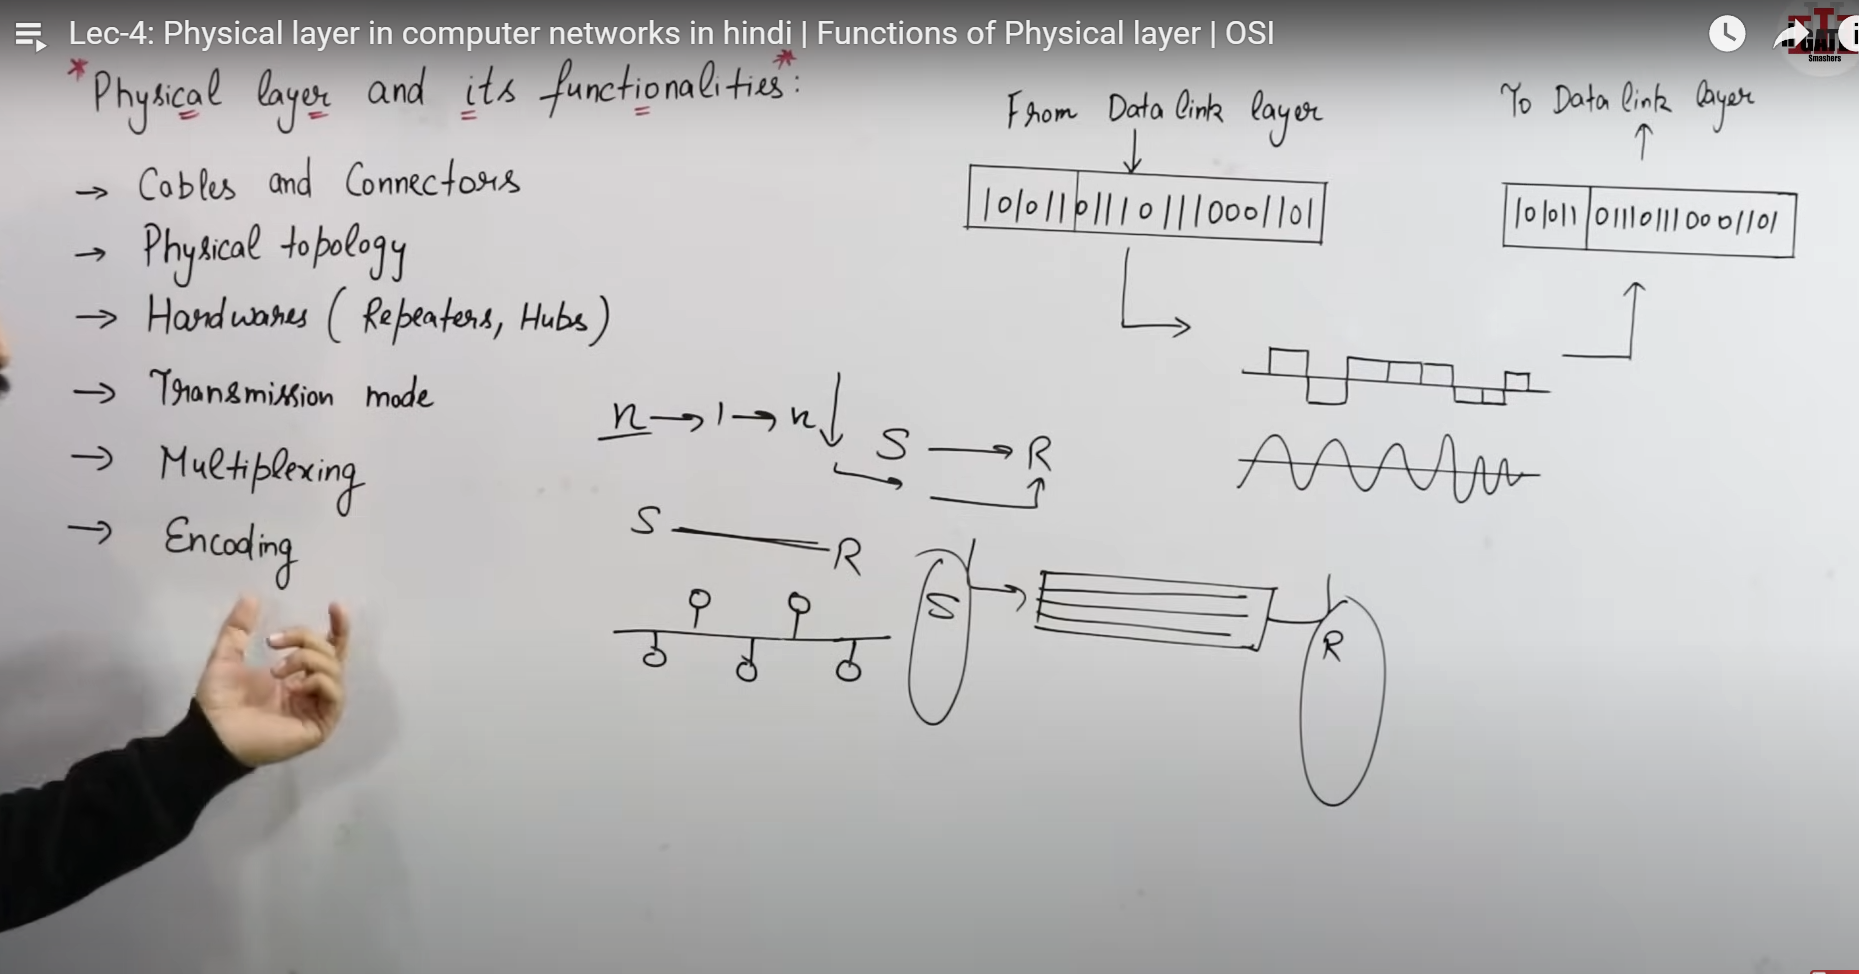 Lec-4: Physical layer in computer networks in hindi | Functions of Physical layer | OSI
GATE
Smashers
*Physical layer and its functionalities*:
→ Cables and Connectors
→ Physical topology
→ Hardwares (Repeaters, Hubs)
→ Transmission mode
→ Multiplexing
→ Encoding
From Data link layer
101011 011101110001101
To Data link layer
101011 011101110001101
n → 1 → n
S → R
S R
S
R